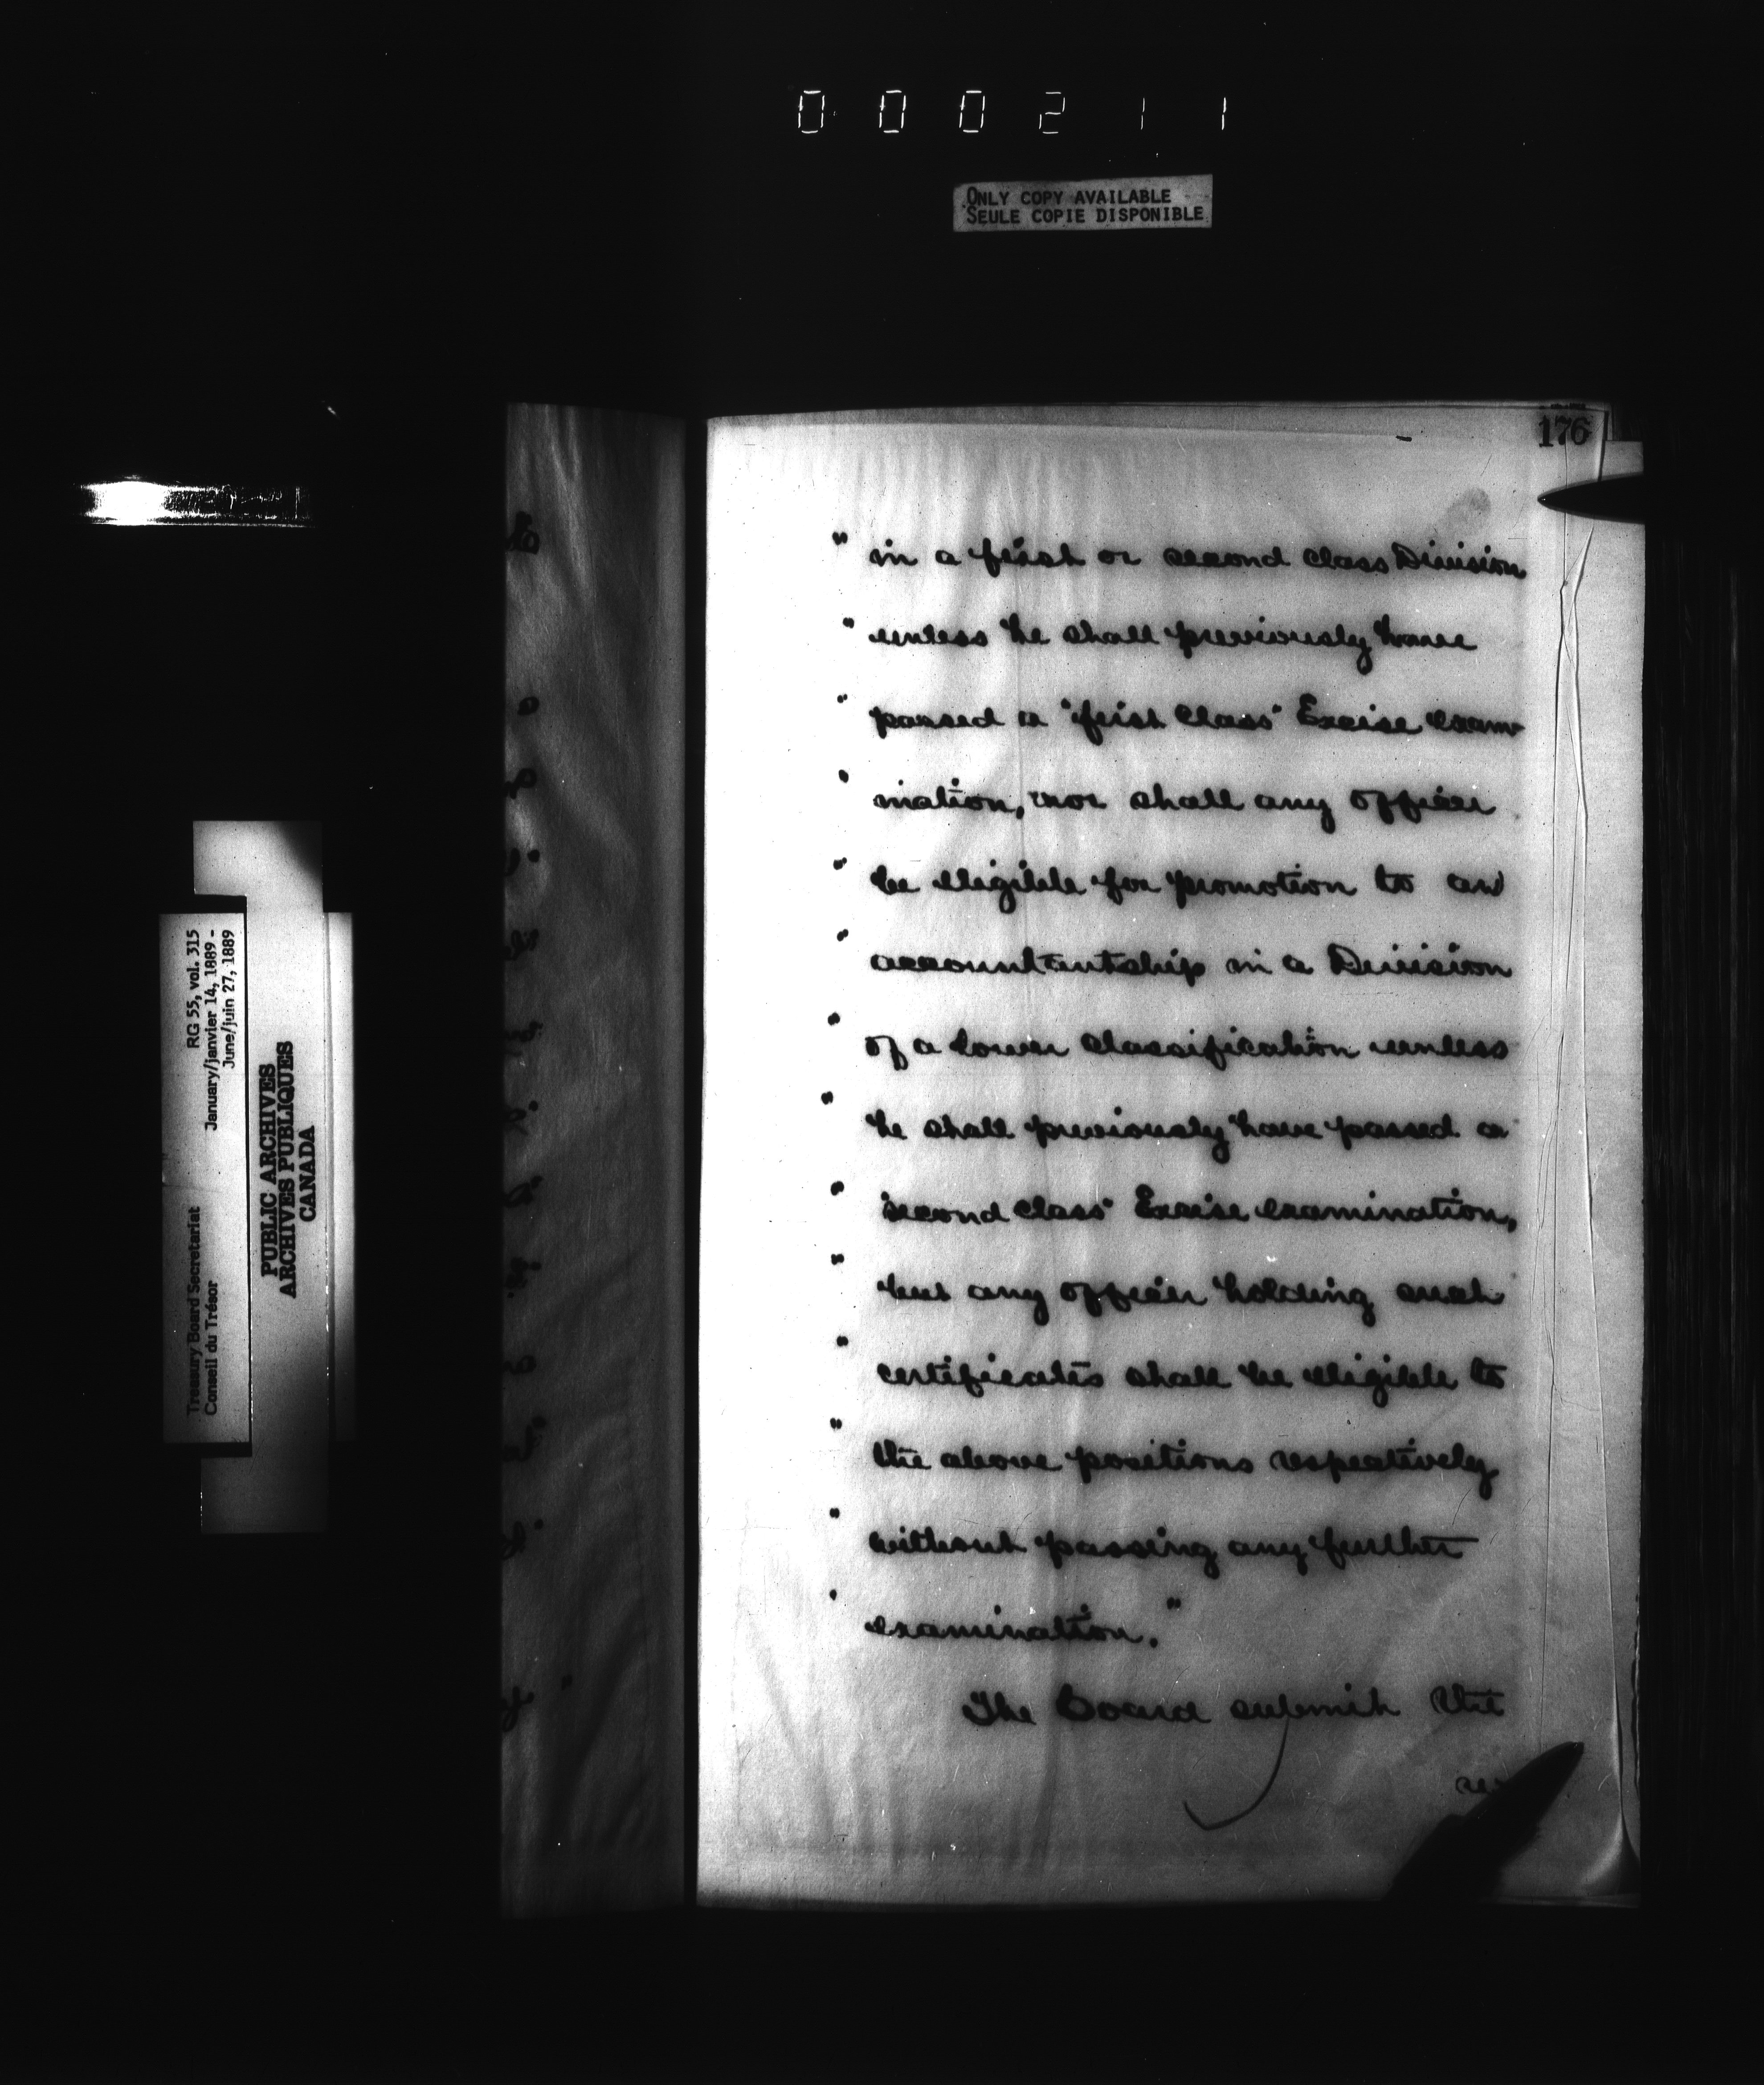 000211
ONLY COPY AVAILABLE
SEULE COPIE DISPONIBLE
176
" in a first or second class Division
" unless he shall previously have
" passed a "first Class" Excise exam-
" ination, nor shall any officer
" be eligible for promotion to an
" accountantship in a Division
" of a lower classification unless
" he shall previously have passed a
" "second class" Excise examination,
" but any officer holding such
" certificates shall be eligible to
" the above positions respectively
" without passing any further
" examination."
The Board submit the
Treasury Board Secretariat RG 55, vol. 315
Conseil du Trésor January/janvier 14, 1889 -
June/juin 27, 1889
PUBLIC ARCHIVES
ARCHIVES PUBLIQUES
CANADA